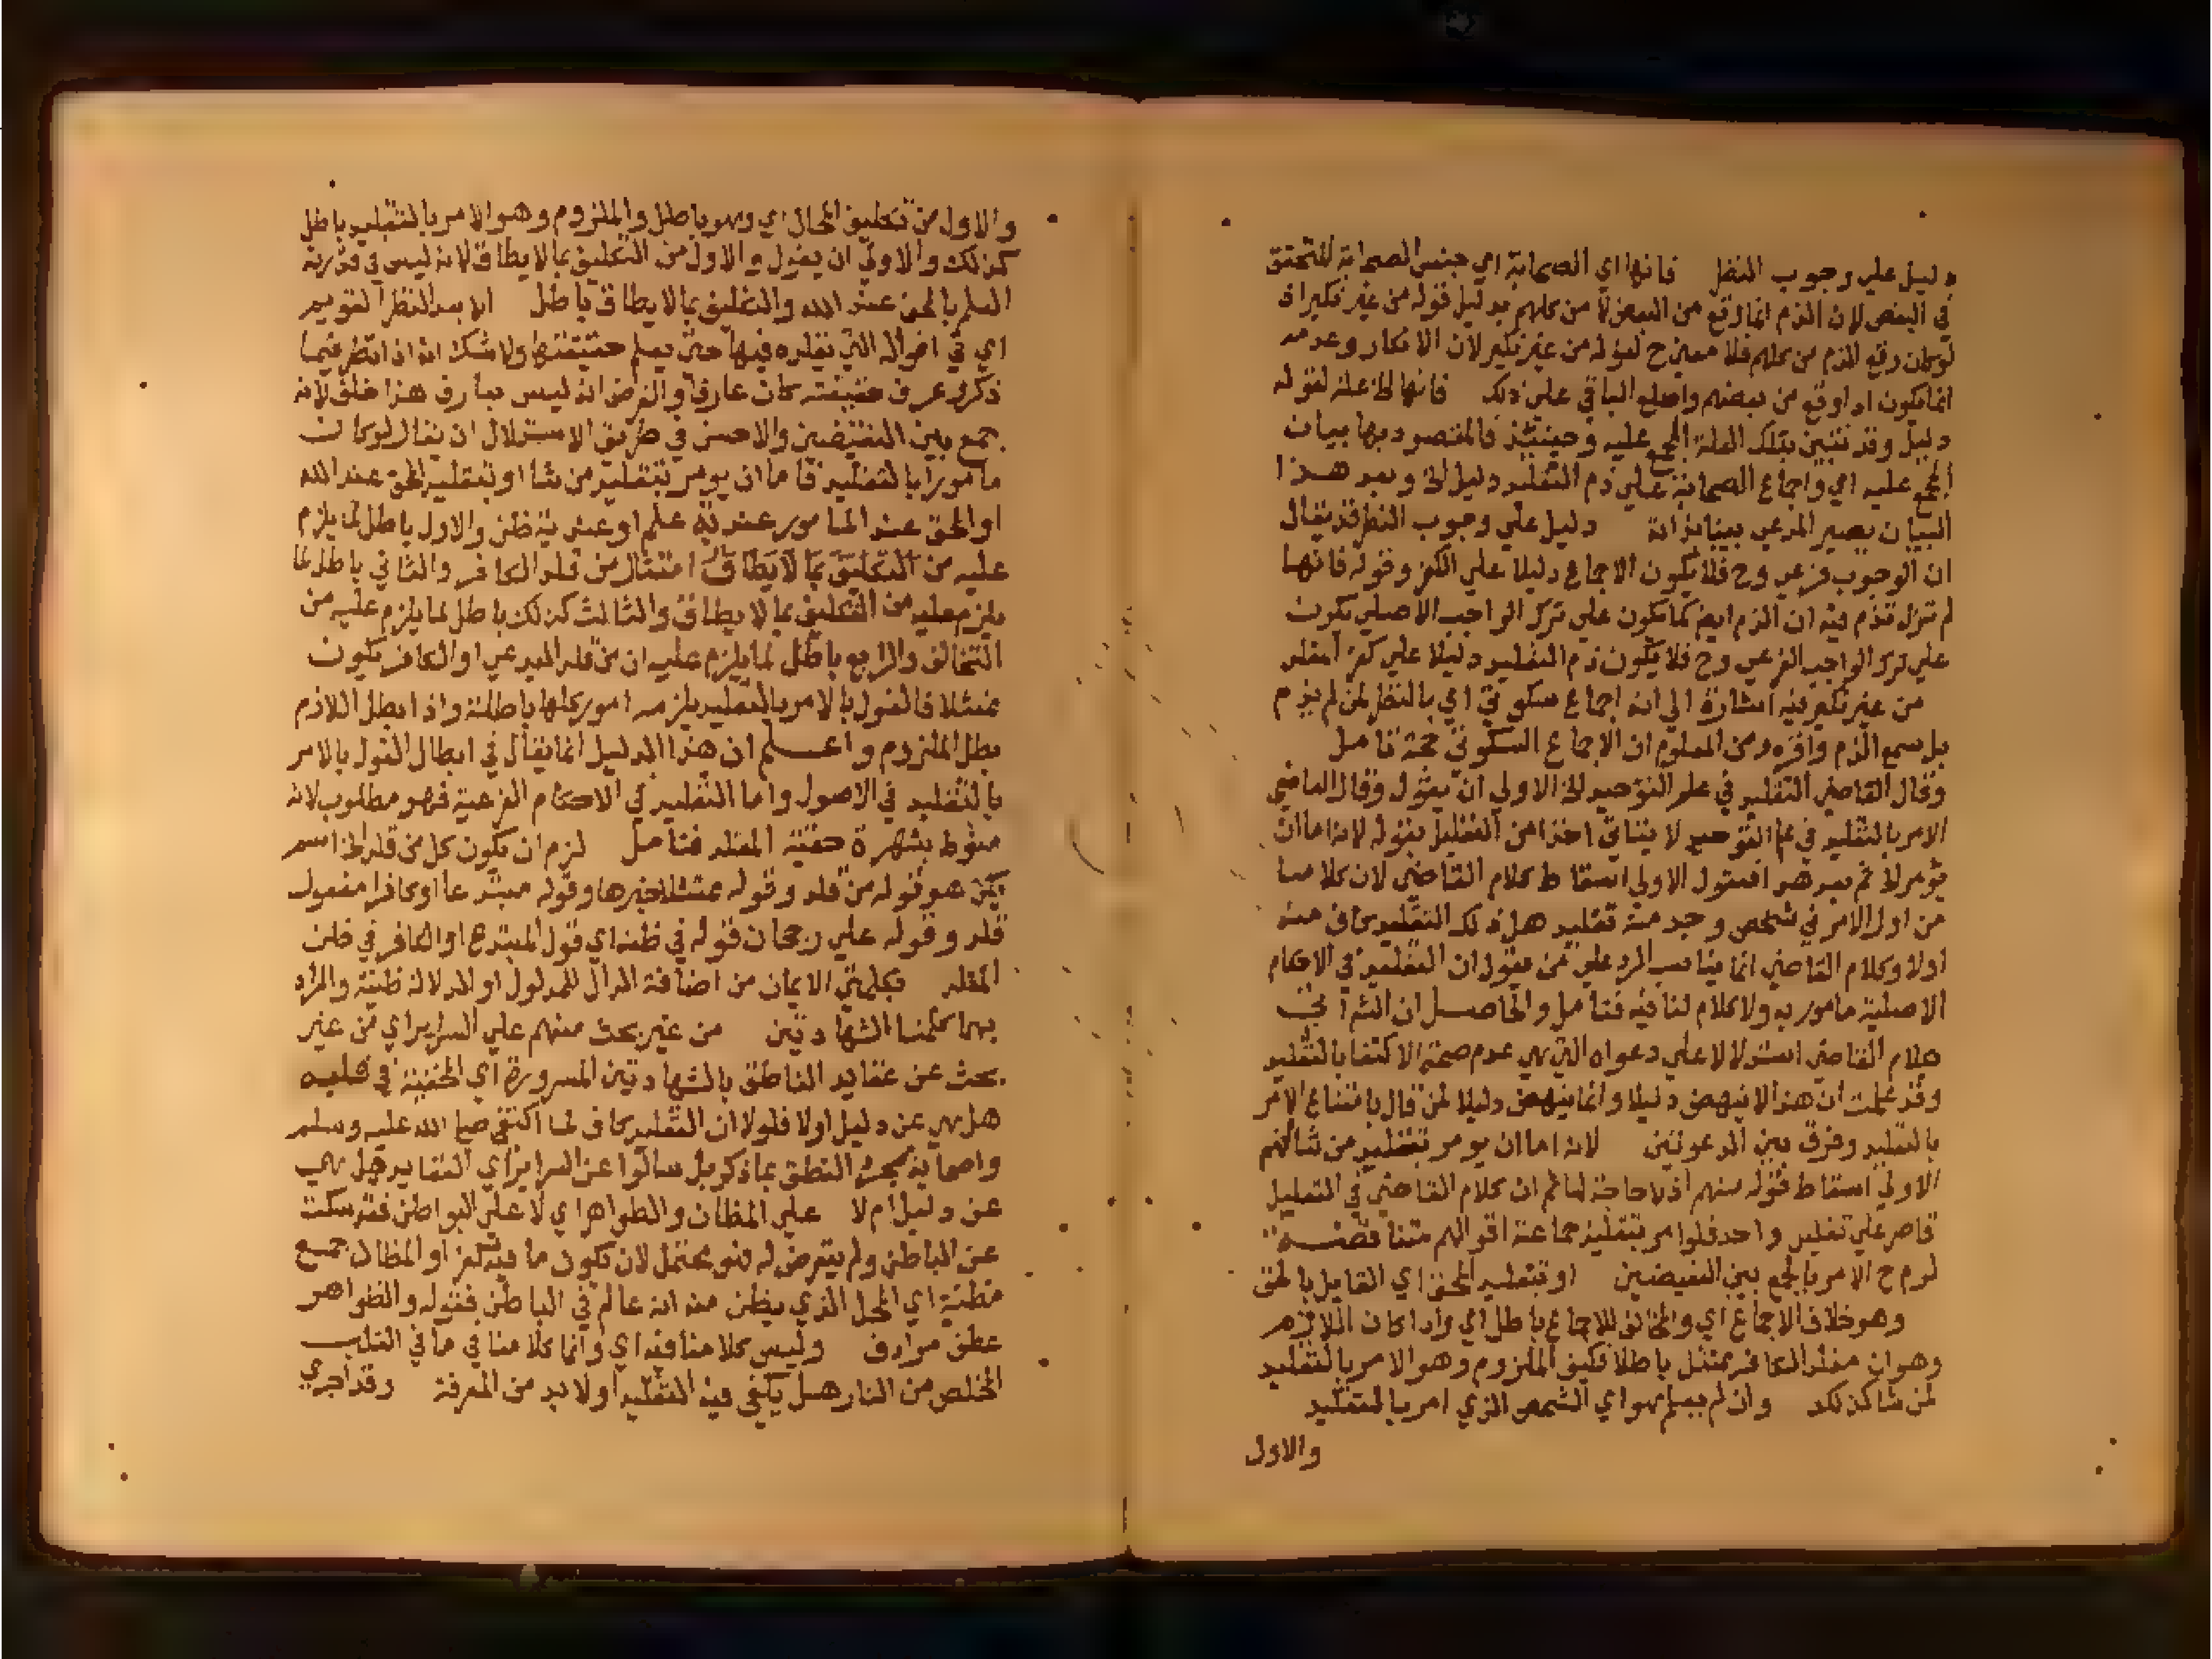 دليل علي وجوب النظر فانها اي الصحابة اي جنس الصحابة للتحقق
في البعض لان الذم انما وقع من البعض لا من كلهم بدليل قوله من غير نكير اذ
لو كان وقع الذم من كلهم فلا معني ح لقوله من غير نكير لان الانكار وعدمه
انما يكون اذا وقع من بعضهم واطلع الباقي علي ذلك فانها الخ علة لقوله
دليل وقد تبين بتلك العلة المجمع عليه وحينئذ فالمقصود بها بيان
المجمع عليه اي واجماع الصحابة علي ذم التقليد دليل الخ وبعد هذا
البيان يصير المدعي بينا بذاته دليل علي وجوب النظر قد يقال
ان الوجوب فرعي وح فلا يكون الاجماع دليلا علي الكفر وقوله فانها
لم تزل تذم فيه ان الذم ايضا كما يكون علي ترك الواجب الاصلي يكون
علي ترك الواجب الفرعي وح فلا يكون ذم التقليد دليلا علي كفر المقلد
من غير نكير فيه اشارة الي انه اجماع سكوتي اي بالنظر لمن لم يذم
بل سمع الذم واقره ومن المعلوم ان الاجماع السكوتي حجة تامل
وقال القاضي التقليد في علم التوحيد الخ الاولي ان يقول وقال القاضي
الامر بالتقليد في علم التوحيد لا يتاتي اخذا من التعليل بقوله لانه اما ان
يؤمر الخ ثم بعد هذا فنقول الاولي اسقاط كلام القاضي لان كلامنا
من اول الامر في شخص وجد منه تقليد هل ذلك التقليد كاف منه
اولا وكلام القاضي انما يناسب الرد علي من يقول ان التقليد في الاحكام
الاصلية مامور به ولا كلام لنا فيه فتامل والحاصل ان الشم ا
كلام القاضي استدلالا علي دعواه التي هي عدم صحة الاكتفا بالتقليد
وقد علمت ان هذا لا ينهض دليلا وانما ينهض دليلا لمن قال بامتناع الامر
بالتقليد وفرق بين الدعوتين لانه اما ان يومر بتقليد من شا منهم
الاولي اسقاط قوله منهم اذ لا حاجة لها ثم ان كلام القاضي في التعليل
قاصر علي تقليد واحد فلو امر بتقليد جماعة اقوالهم متناقضة
لزم ح الامر بالجمع بين النقيضين او بتقليد المحق اي القايل بالحق
وهو خلاف الاجماع اي والمخالف للاجماع باطل اي واذا كان اللازم
وهو ان مقلد الكافر ممتثل باطلا فكيف الملزوم وهو الامر بالتقليد
لمن شا كذلك وان لم يعلم هو اي الشخص الذي امر بالتقليد
والاول
والاول من تكليف المحال اي وهو باطل والملزوم وهو الامر بالتقليد باطل
كذلك والاولي ان يقول والاول من التكليف بما لا يطاق لانه ليس في قدرته
العلم بالمحق عند الله والتكليف بما لا يطاق باطل الا بعد النظر القويم
اي في اقواله التي يقلده فيها حتي يعلم حقيقتها ولا شك انه اذا نظر فيما
ذكر وعرف حقيقته كان عارفا والفرض انه ليس بعارف هذا خلف لانه
جمع بين النقيضين والاحسن في طريق الاستدلال ان يقال لو كان
مامورا بالتقليد فاما ان يومر بتقليد من شا او بتقليد المحق عند الله
او المحق عند المامور عندية علم او عندية ظن والاول باطل لما يلزم
عليه من التكليف بما لا يطاق امتثال من قلد الكافر والثاني باطل لما
يلزم عليه من التكليف بما لا يطاق والثالث كذلك باطل لما يلزم عليه من
التخالف والرابع باطل لما يلزم عليه ان من قلد المبدعي او الكافر يكون
ممتثلا فالقول بالامر بالتقليد يلزمه امور كلها باطلة واذا بطل اللازم
بطل الملزوم واعلم ان هذا الدليل انما يقال في ابطال القول بالامر
بالتقليد في الاصول واما التقليد في الاحكام الفرعية فهو مطلوب لانه
منوط بشهرة حقية المقلد فتامل لزم ان يكون كل من قلد الخ اسم
يكن هو قوله من قلد وقوله ممتثلا خبرها وقوله مبتدعا او كافرا مفعول
قلد وقوله علي رجحان قوله في ظنه اي قول المبتدع او الكافر في ظن
المقلد بكلمتي الايمان من اضافة الدال للمدلول او الدلالة ظنية والمراد
بهما كلمتا الشهادتين من غير بحث منهم علي السراير اي من غير
بحث عن عقايد الناطق بالشهادتين المسرورة اي المخفية في قلبه
هل هي عن دليل اولا فلولا ان التقليد كاف لما اكتفي صلي الله عليه وسلم
واصحابه بمجرد النطق بما ذكر بل سالوا عن السراير اي العقايد هل هي
عن دليل ام لا علي المظان والظواهر اي لا علي البواطن فقد سكت
عن الباطن ولم يتعرض له فهو محتمل لان يكون ما فيه كفر او المظان جمع
مظنة اي المحل الذي يظن منه انه عالم في الباطن فقوله والظواهر
عطف مرادف وليس كلامنا فيه اي وانما كلامنا في ما في القلب
المخلص من النار هل يكفي فيه التقليد او لا بد من المعرفة وقد اجري